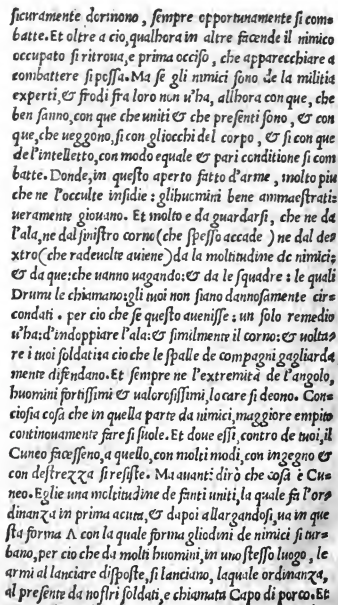 ſicuramente dormono, ſempre opportunamente ſi com⸗
batte. Et oltre a cio, qualhora in altre facende il nimico
occupato ſi ritroua, e prima occiſo, che apparecchiare a
combattere ſi poſſa. Ma ſe gli nimici ſono de la militia
experti, & frodi fra loro non u'ha, allhora con que, che
ben ſanno, con que che uniti & che preſenti ſono, & con
que, che ueggono, ſi con gliocchi del corpo, & ſi con que
de l'intelletto, con modo equale & pari conditione ſi com
batte. Donde, in queſto aperto fatto d'arme, molto piu
che ne l'occulte inſidie: glihuomini bene ammaeſtrati:
ueramente giouano. Et molto e da guardarſi, che ne da
l'ala, ne dal ſiniſtro corno (che ſpeſſo accade) ne dal de⸗
xtro (che radeuolte auiene) da la moltitudine de nimici;
& da que: che uanno uagando: & da le ſquadre: le quali
Drumi le chiamano: gli tuoi non ſiano dannoſamente cir⸗
condati. per cio che ſe queſto aueniſſe: un ſolo remedio
u'ha: d'indoppiare l'ala: & ſimilmente il corno: & uolta⸗
re i tuoi ſoldati: a cio che le ſpalle de compagni gagliarda
mente difendano. Et ſempre ne l'extremità de l'angolo,
huomini fortiſſimi & ualoroſiſſimi, locare ſi deono. Con⸗
cioſia coſa che in quella parte da nimici, maggiore empito
continouamente fare ſi ſuole. Et doue eſſi, contro de tuoi, il
Cuneo faceſſeno, a quello, con molti modi, con ingegno &
con deſtrezza ſi reſiſte. Ma auanti dirò che coſa è Cu⸗
neo. Eglie una moltitudine de fanti uniti, la quale fa l'or⸗
dinanza in prima acuta, & dapoi allargandoſi, ua in que
ſta forma Λ con la quale forma gliodini de nimici ſi tur⸗
bano, per cio che da molti huomini, in uno ſteſſo luogo, le
armi al lanciare diſpoſte, ſi lanciano, laquale ordinanza,
al preſente da noſtri ſoldati, e chiamata Capo di porco. Et